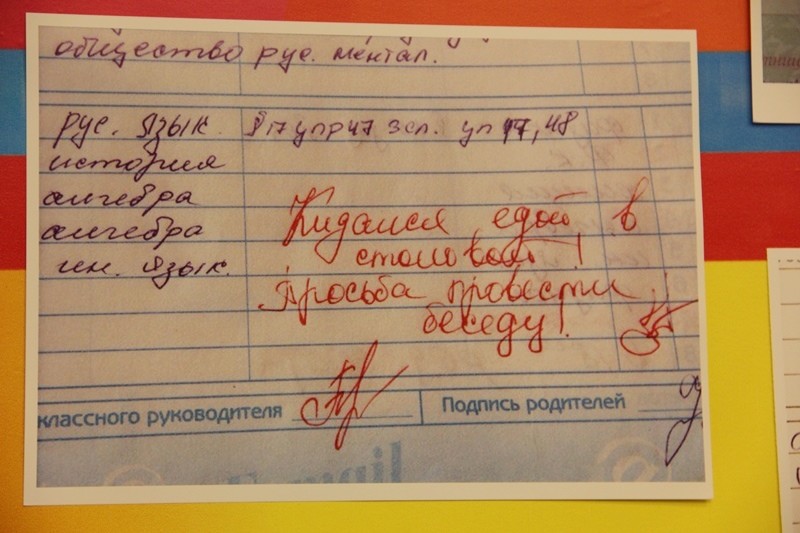 общество рус. ментал.
рус. язык. §17 упр47 зсл. уп 17, 48
история
алгебра
алгебра
ин. язык.
Кидался едой в
столовой!
Просьба провести
беседу!
классного руководителя
Подпись родителей